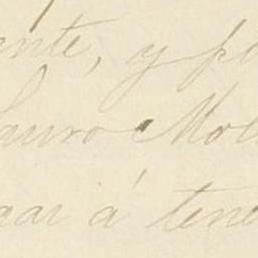 ante, y po
Lauro Mol
gar á tene